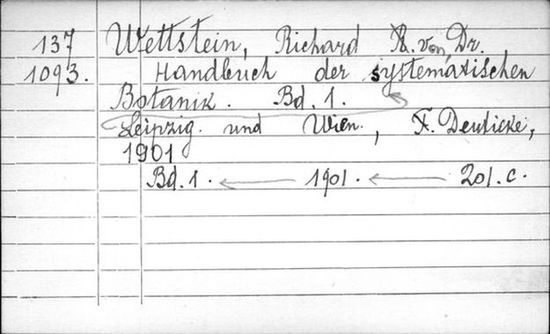 137 Wettstein, Richard R. von Dr.
1093. Handbuch der systematischen
Botanik. Bd. 1.
Leipzig. und Wien., F. Deuticke,
1901
Bd. 1. 1901. 201. c.